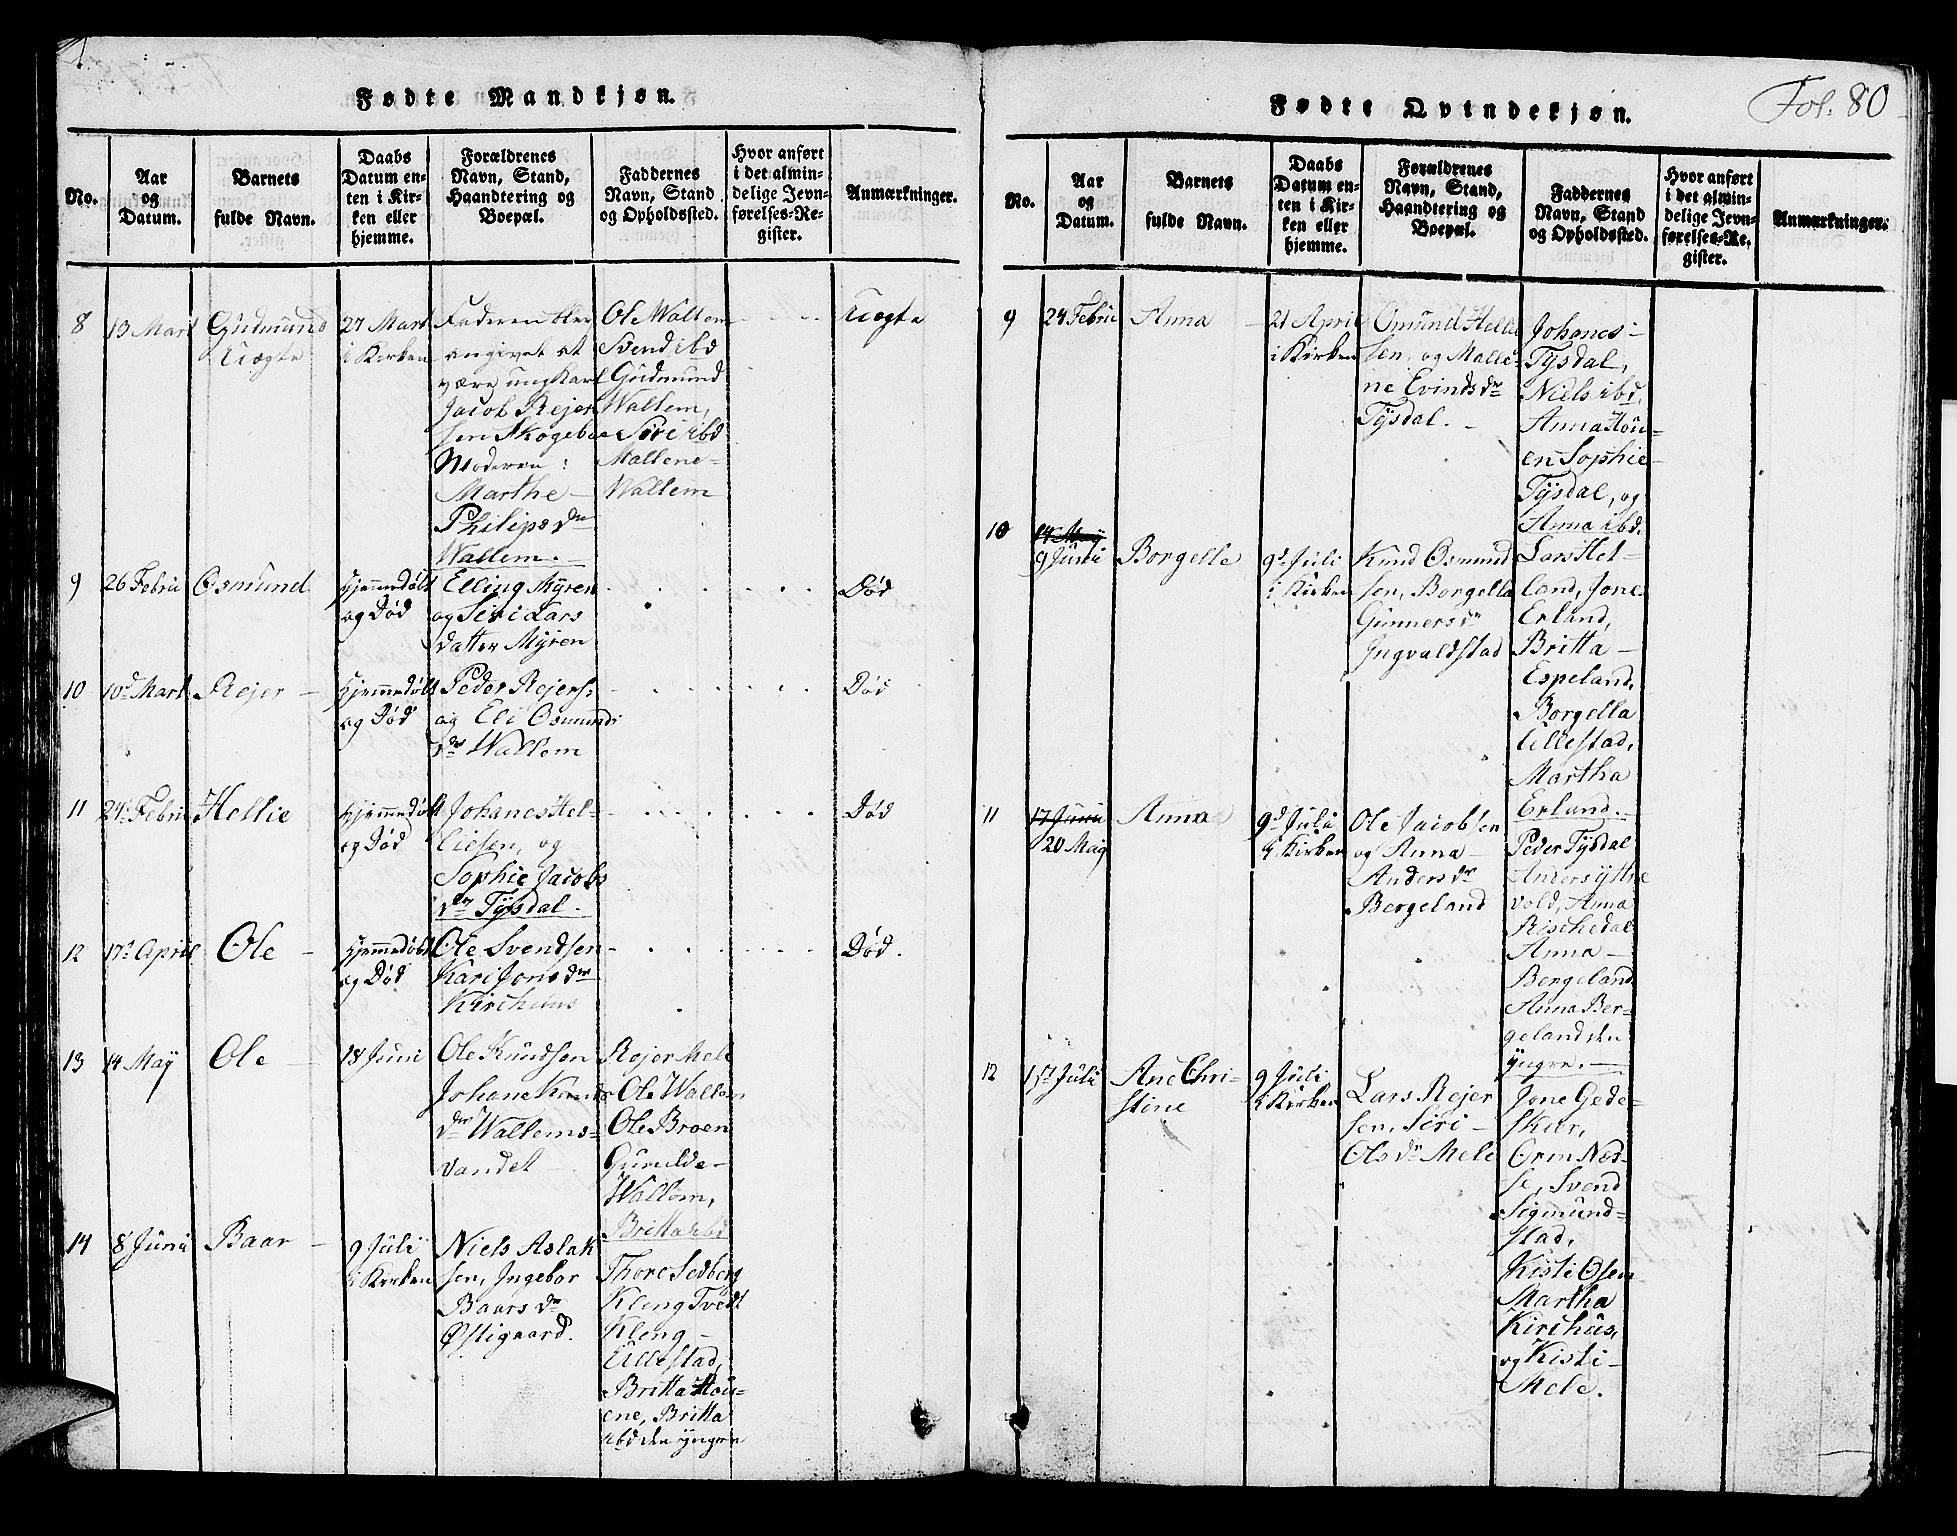 Fødte Mandkjøn.
No.
Aar
og
Datum.
Barnets
fulde Navn.
Daabs
Datum en-
ten i Kir-
ken eller
hjemme.
Forældrenes
Navn, Stand,
Haandtering og
Boepæl.
Faddernes
Navn, Stand
og Opholdssted.
Hvor anført
i det almin-
delige Jevn-
førelses-Re-
gister.
Anmærkninger.
8
13 Mart
Gudmund
Uægte
27 Mart
i Kirken
Faderen blev
angivet at
være ungkarl
Jacob Rejer
sen Skogeboe
Moderen:
Marthe –
Philipsdr
Wallem. –
Ole Wallem
Svend ibd
Gudmund
Wallem,
Siri ibd
Mallene=
Wallem
Uægte
9
26 Febru
Osmund
Hjemmedøbt
og Død
Elling Myren
og Siri Lars
datter Myren
Død
10
10d Mart
Rejer –
Hjemmedøbt
og Død
Peder Rejers:
og Eli Osmunds
dr Wallem
Død
11
24d Febru
Hellie
Hjemmedøbt
og Død
Johanes Hel-
liesen, og
Sophie Jacobs
dr Tÿsdal.
Død
12
17d April
Ole –
Hjemmedøbt
og Død
Ole Svendsen
Kari Jonsdr
Kirchuus
Død.
13
14 Maÿ
Ole –
18 Juni
Ole Knudsen
Johane Knuds
dr Wallems=
vandet –
Rejer Mele
Ole Wallem
Ole Broen
Gunilde –
Wallem,
Britta ibd
14
8 Juni
Baar –
9 Juli
i Kirken
Niels Aslak
sen, Ingebor
Baarsdr
Østigaard.
Thore Sedberg
Kleng Tvedt
Kleng –
Lillestad,
Britta Hou-
ene, Britta
ibd den yngere
Fol: 80
Fødte Qvindekjøn.
No.
Aar
og
Datum.
Barnets
fulde Navn.
Daabs
Datum en-
ten i Kir-
ken eller
hjemme.
Forældrenes
Navn, Stand,
Haandtering og
Boepæl.
Faddernes
Navn, Stand
og Opholdsted.
Hvor anført
i det almin-
delige Jevn-
førelses-Re-
gister.
Anmærkninger.
9
24 Febru
Anna –
21 April
i Kirken
Omund Hellie
sen, og Malle-
ne Evindsdr
Tÿsdal. –
Johanes –
Tÿsdal,
Niels ibd,
Anna Hou-
en Sophie –
Tÿsdal, og
Anna ibd.
10
14 Maÿ
9 Juni
Borgelle
9d Juli
i Kirken
Knud Osmund
sen, Borgella
Gunnersdr
Ingvaldstad
Lars Hel-
land, Jone
Erland,
Britta –
Espeland,
Borgella
Lillestad,
Martha
Erland. –
11
17 Juni
20 Maÿ
Anna
9d Juli
i Kirken
Ole Jacobsen
og Anna –
Andersdr
Bergeland
Peder Tÿsdal
Anders Ÿttre
vold, Anna
Rischedal
Anna –
Bergeland
Anna Ber-
geland den
yngre. –
12
1st Juli
Ane Chri-
stine
9 Juli
i Kirken
Lars Rejer
sen, Siri –
Olsdr Mele
Jone Gede-
sker,
Orm Nod-
se, Svend
Sigmund-
stad,
Kisti Osen
Martha
Kirchüs,
og Kisti –
Mele.